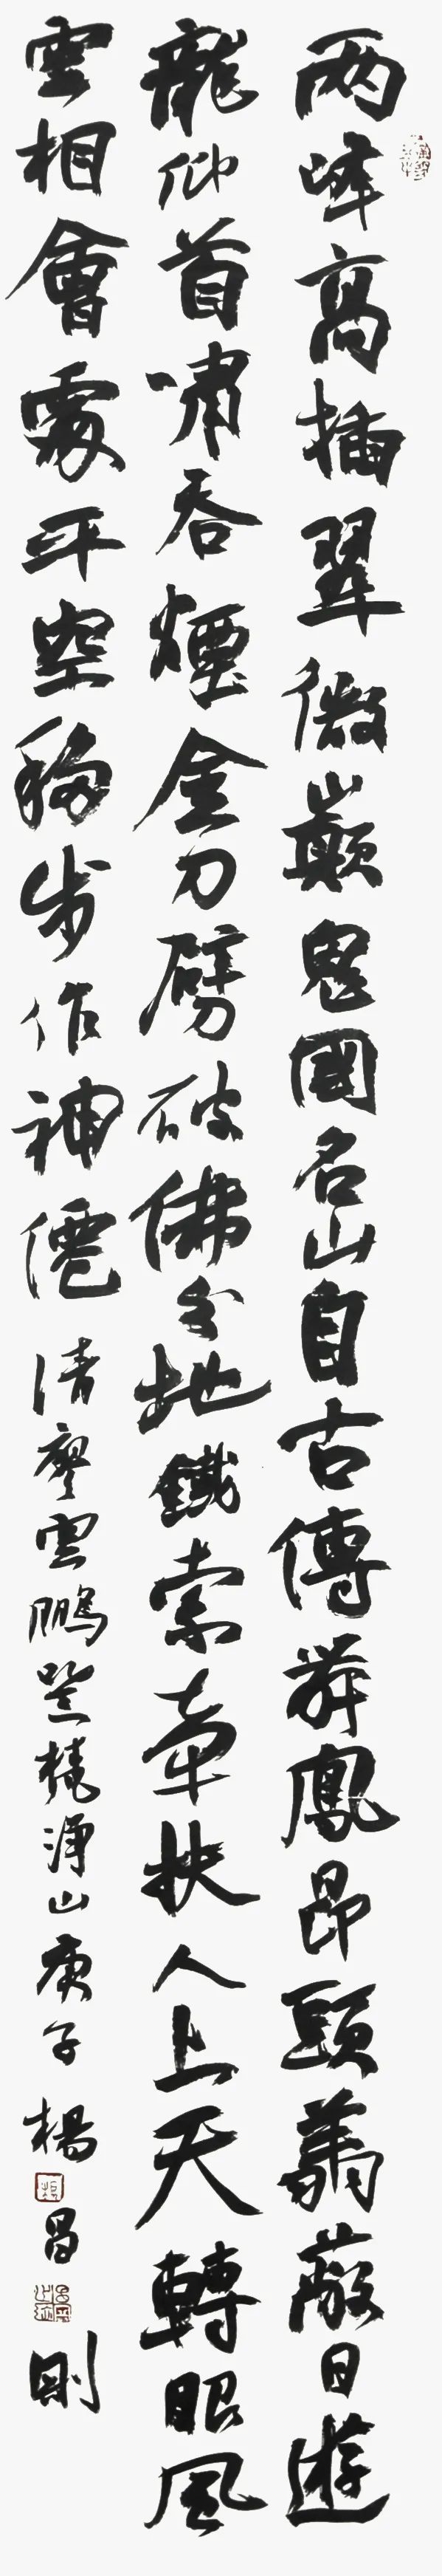 两峰高插翠微巅鬼國名山自古傳舞鳳昂頭翥蔽日遊
龍仰首嘯吞煙金刀劈破佛分地鐵索牽扶人上天轉眼風
雲相會處平空移步作神僊清廖雲鵬登梵淨山庚子楊昌剛